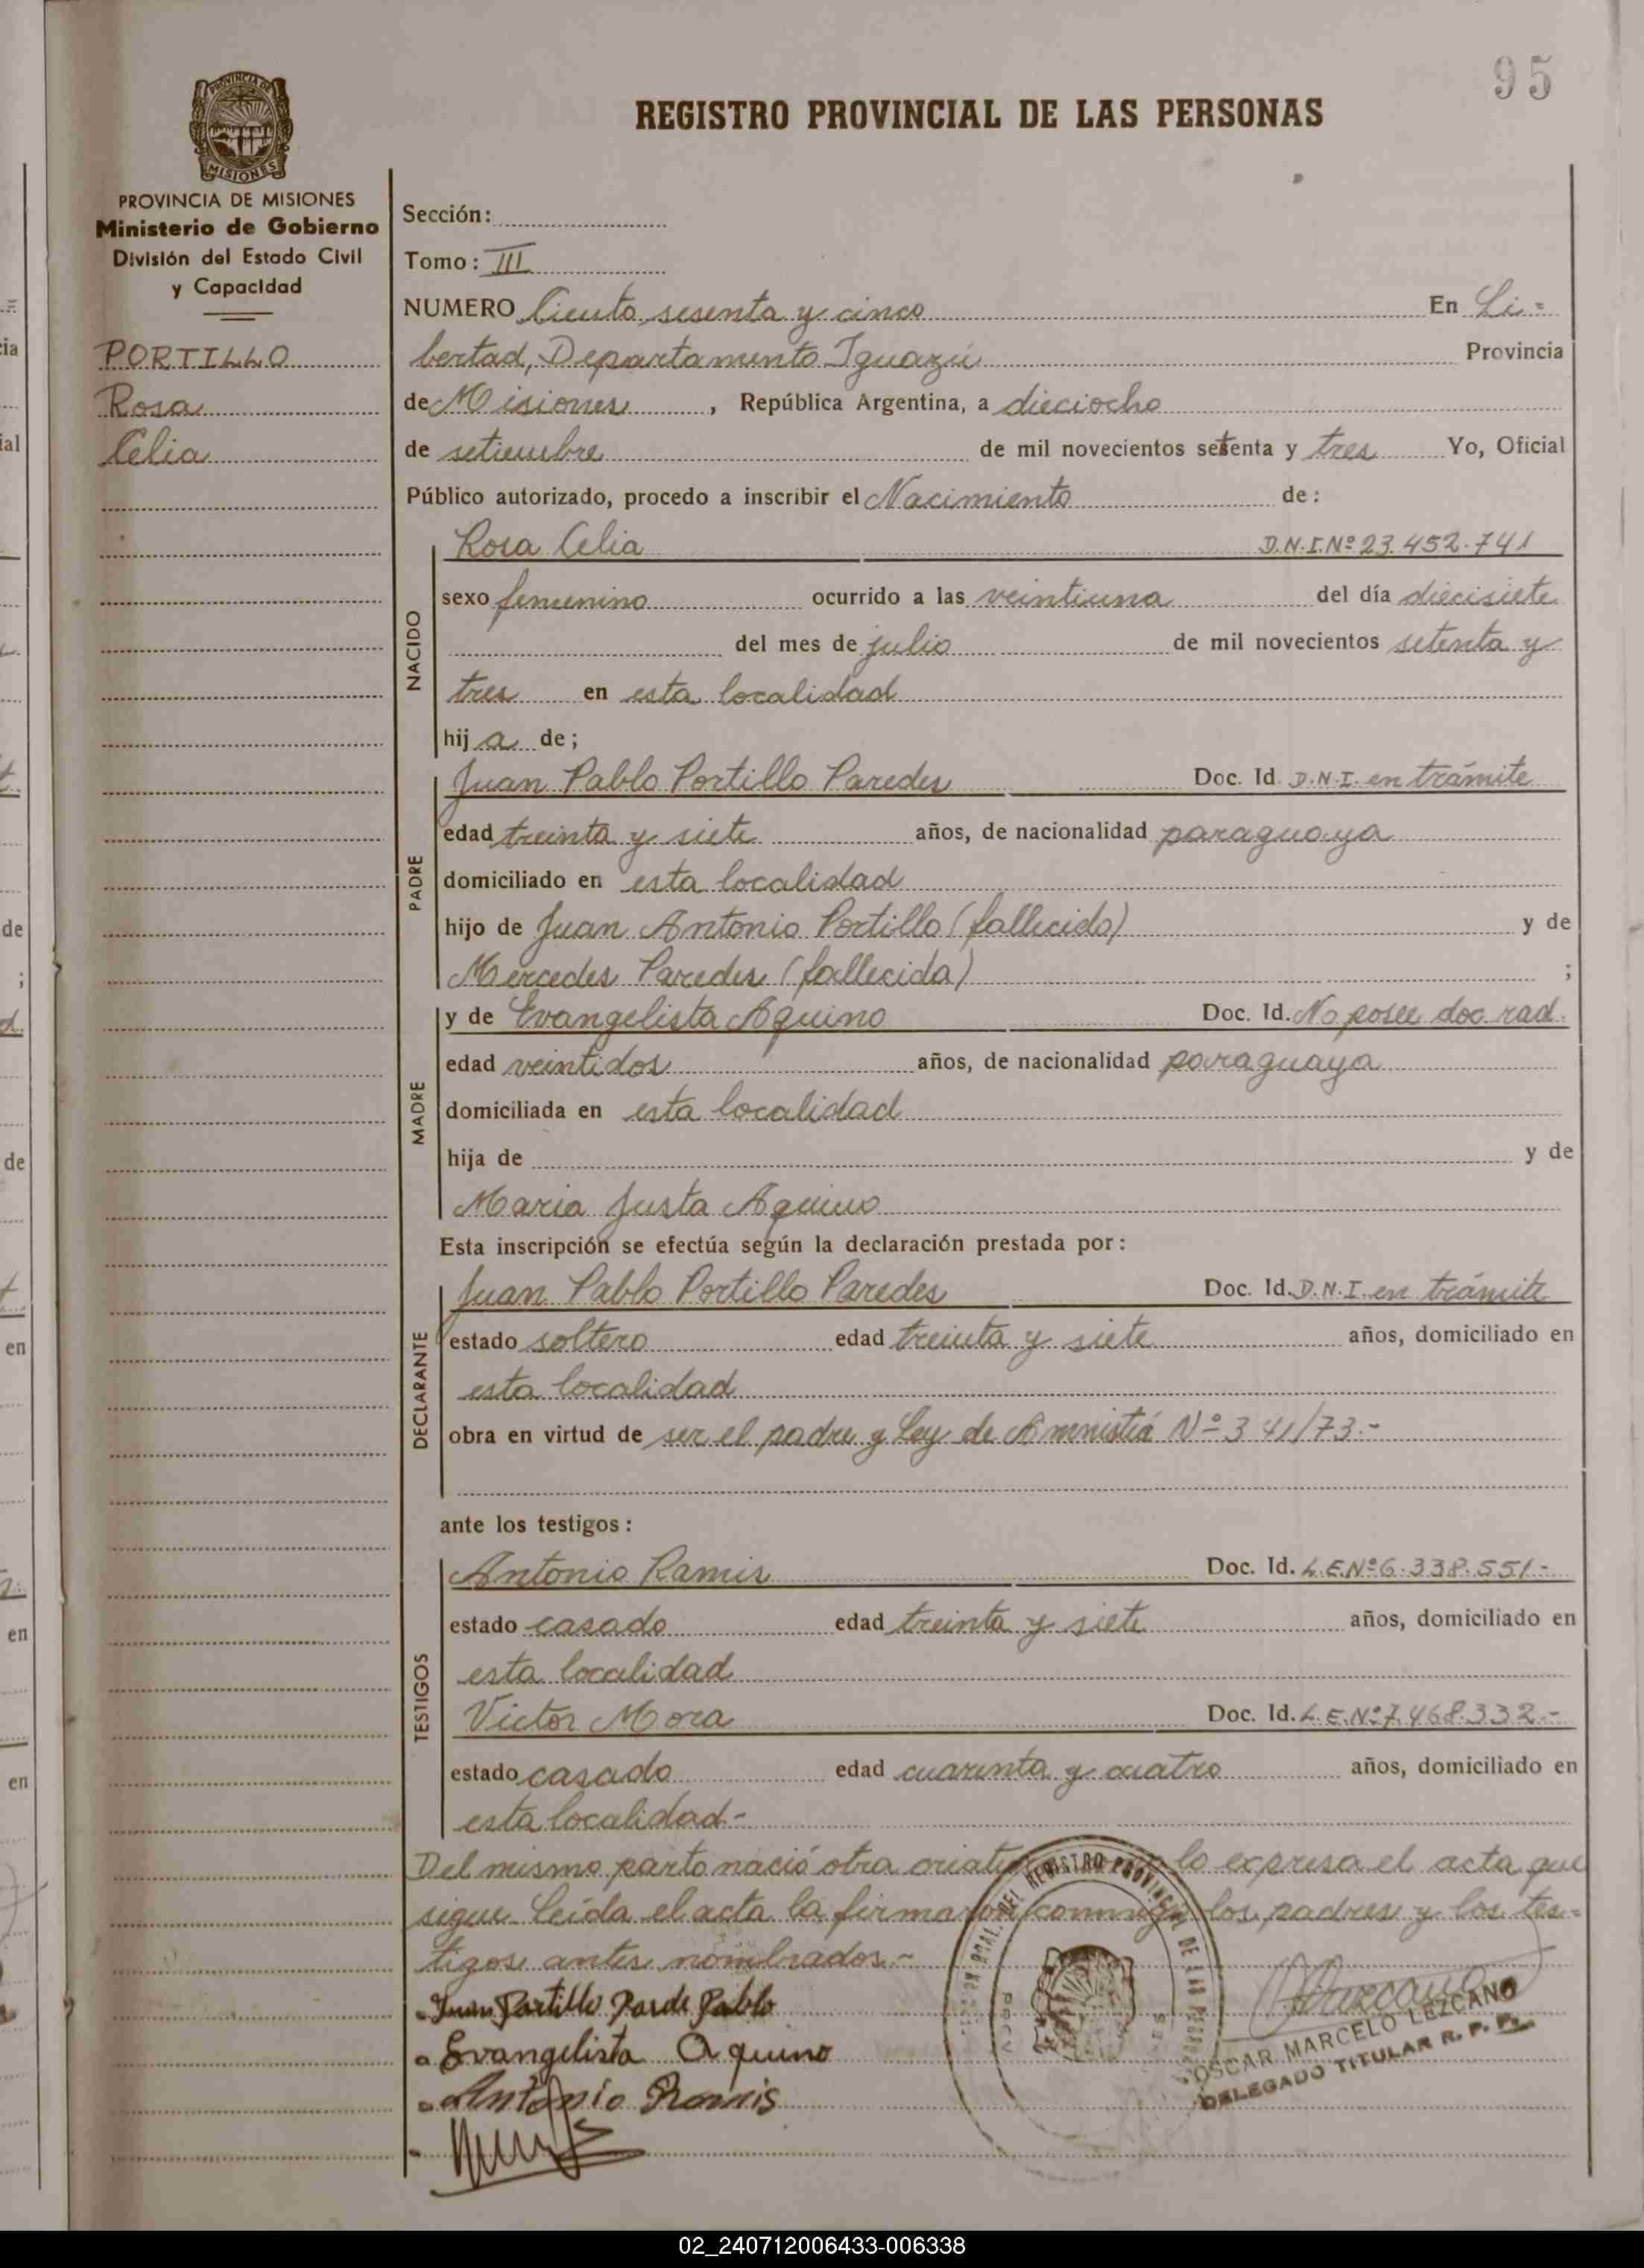 95
REGISTRO PROVINCIAL DE LAS PERSONAS
PROVINCIA DE MISIONES
Ministerio de Gobierno
División del Estado Civil
y Capacidad
PORTILLO
Rosa
Celia
Sección:
Tomo: III
NUMERO Ciento sesenta y cinco En Li=
bertad, Departamento Iguazú Provincia
de Misiones, República Argentina, a dieciocho
de setiembre de mil novecientos setenta y tres Yo, Oficial
Público autorizado, procedo a inscribir el Nacimiento de:
NACIDO
Rosa Celia D.N.I.Nº 23.452.741
sexo femenino ocurrido a las veintiuna del día diecisiete
del mes de julio de mil novecientos setenta y
tres en esta localidad
hij a de;
PADRE
Juan Pablo Portillo Paredes Doc. Id. D.N.I. en trámite
edad treinta y siete años, de nacionalidad paraguaya
domiciliado en esta localidad
hijo de Juan Antonio Portillo (fallecido) y de
Mercedes Paredes (fallecida) ;
MADRE
y de Evangelista Aquino Doc. Id. No posee doc. rad.
edad veintidos años, de nacionalidad paraguaya
domiciliada en esta localidad
hija de y de
Maria Justa Aquino
Esta inscripción se efectúa según la declaración prestada por:
DECLARANTE
Juan Pablo Portillo Paredes Doc. Id. D.N.I. en trámite
estado soltero edad treinta y siete años, domiciliado en
esta localidad
obra en virtud de ser el padre y Ley de Amnistía Nº 341/73.-
ante los testigos:
TESTIGOS
Antonio Ramis Doc. Id. L.E.Nº 6.338.551.-
estado casado edad treinta y siete años, domiciliado en
esta localidad
Victor Mora Doc. Id. L.E.Nº 7.468.332.-
estado casado edad cuarenta y cuatro años, domiciliado en
esta localidad-
Del mismo parto nació otra lo expresa el acta que
sigue. Leída el acta la firmaron conmigo los padres y los tes=
tigos antes nombrados.-
Juan Portillo Pablo
Evangelista Aquino
Antonio Ramis
OSCAR MARCELO LEZCANO
DELEGADO TITULAR R. P. P.
02_240712006433-006338